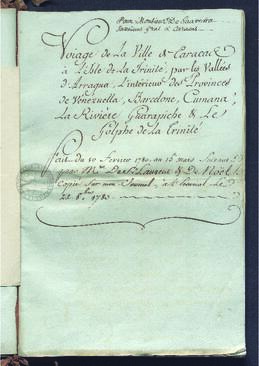 Pour Monsieur De Saavedra
Intendant Gral à Caracas
Voiage de La Ville de Caracas
à l'isle de La Trinité, par les Vallées
d'Arragua, L'intérieur des Provinces
de Venezuella, Barcelone, Cumana,
La Riviére Guarapiche & Le
Golphe de la Trinité
fait du 20 fevrier 1783. au 15 mars Suivant
par Mrs De St Laurent & De Noël
Copié Sur mon Journal, à
22. 8bre 1783